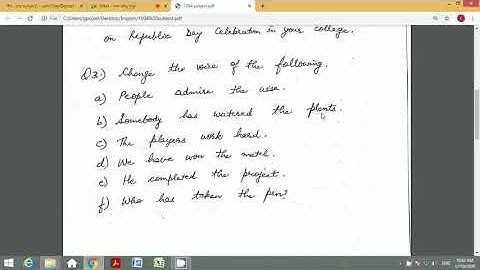 on Republic Day Celebration in your college.
Q3:) Change the voice of the following.
a) People admire the wise.
b) Somebody has watered the plants.
c) The players work hard.
d) We have won the match.
e) He completed the project.
f) Who has taken the pen?